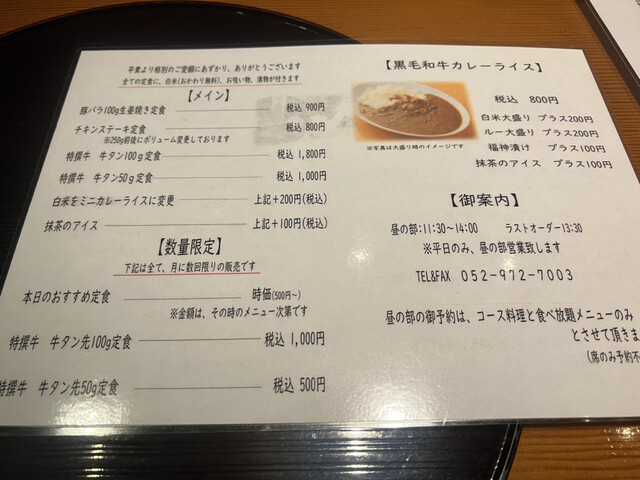 平素より格別のご愛顧にあずかり、ありがとうございます
全ての定食に、白米(おかわり無料)、お吸い物、漬物が付きます
【メイン】
豚バラ100g生姜焼き定食 税込 900円
チキンステーキ定食 税込 800円
※250g前後にボリューム変更しております
特撰牛 牛タン100g定食 税込 1,800円
特撰牛 牛タン50g定食 税込 1,000円
白米をミニカレーライスに変更 上記+200円(税込)
抹茶のアイス 上記+100円(税込)
【数量限定】
下記は全て、月に数回限りの販売です
本日のおすすめ定食 時価(500円～)
※金額は、その時のメニュー次第です
特撰牛 牛タン先100g定食 税込 1,000円
特撰牛 牛タン先50g定食 税込 500円
【黒毛和牛カレーライス】
※写真は大盛り時のイメージです
税込 800円
白米大盛り プラス200円
ルー大盛り プラス200円
福神漬け プラス100円
抹茶のアイス プラス100円
【御案内】
昼の部:11:30～14:00 ラストオーダー13:30
※平日のみ、昼の部営業致します
TEL&FAX 052-972-7003
昼の部の御予約は、コース料理と食べ放題メニューのみ
とさせて頂きま
(席のみ予約不